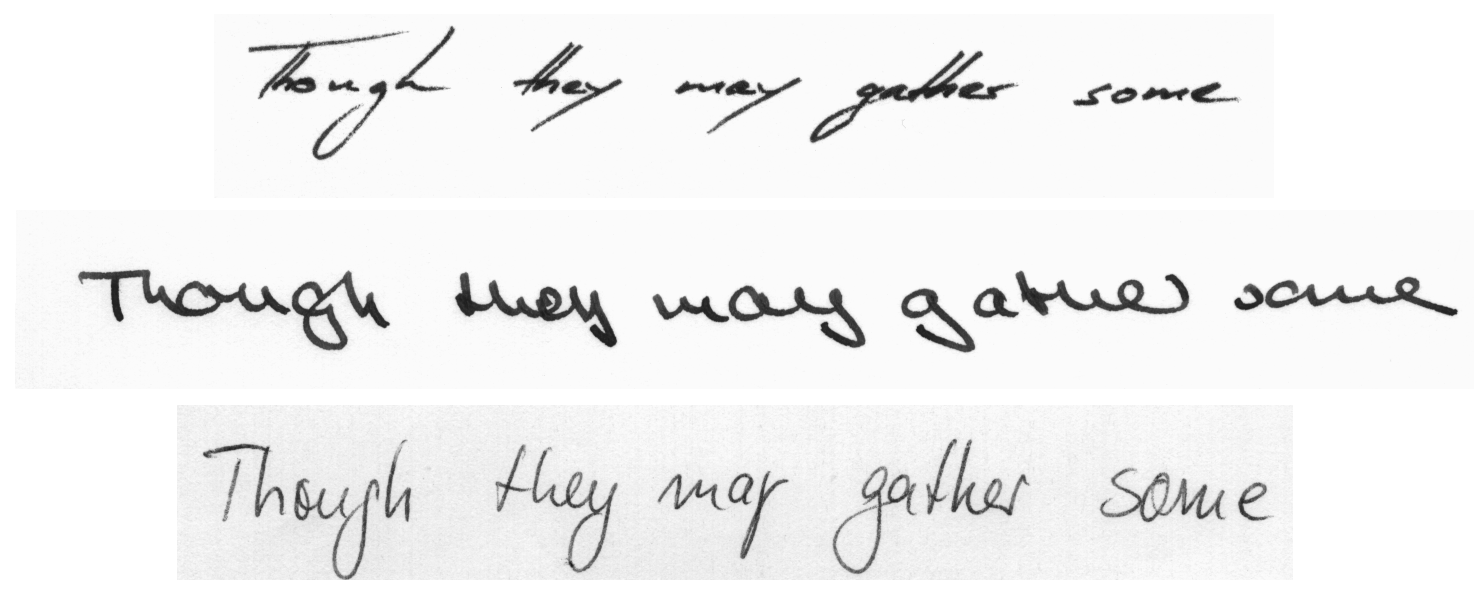 Though they may gather some
Though they may gather some
Though they may gather some